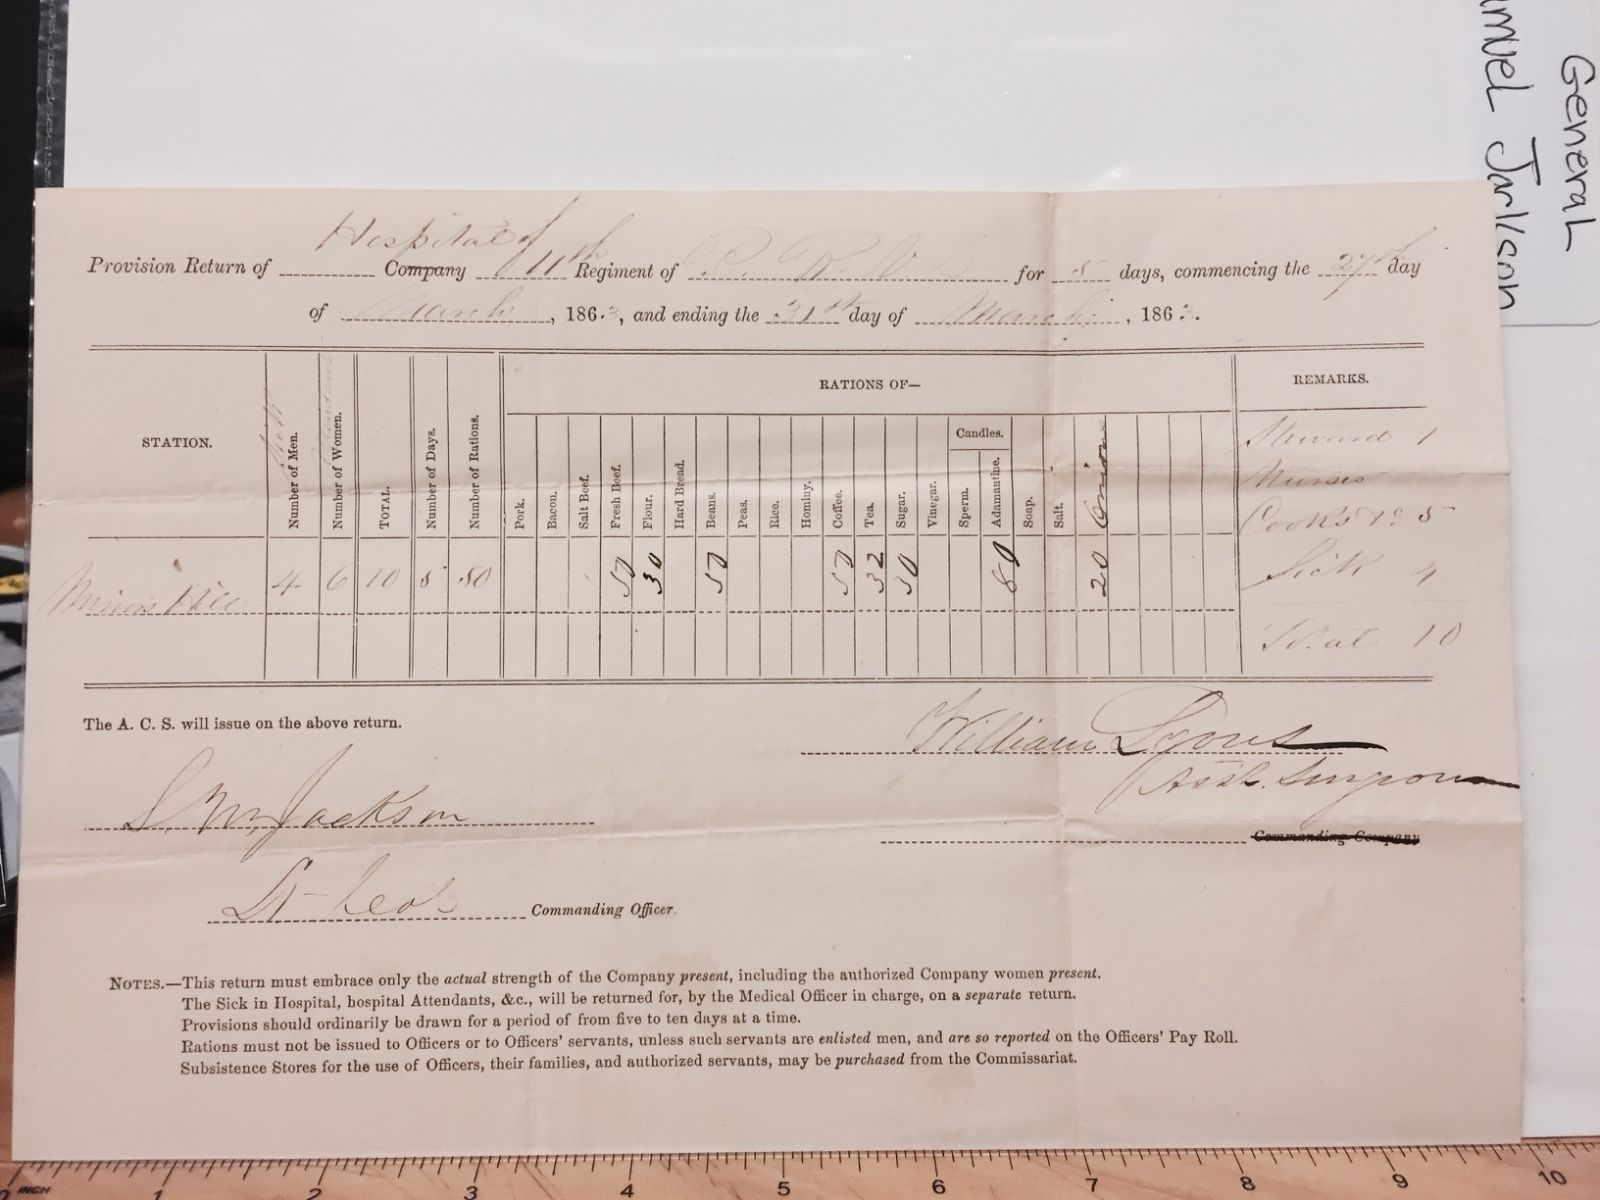 General
amuel Jackson
Hospital of
Provision Return of Company 11th Regiment of P. R. V. for 5 days, commencing the 27th day
of March, 1863, and ending the 31st day of March, 1863.
STATION.
Sick
Number of Men.
Number of Women.
TOTAL.
Number of Days.
Number of Rations.
RATIONS OF—
Pork.
Bacon.
Salt Beef.
Fresh Beef.
Flour.
Hard Bread.
Beans.
Peas.
Rice.
Hominy.
Coffee.
Tea.
Sugar.
Vinegar.
Candles.
Sperm.
Adamantine.
Soap.
Salt.
Onions
REMARKS.
Steward 1
Nurses
Cooks &c 5
Sick 4
Total 10
4 6 10 5 50 50 30 50 50 32 30 20
The A. C. S. will issue on the above return.
William Lyons
Asst. Surgeon
S. M. Jackson
Commanding Company
Lt Col Commanding Officer.
NOTES.—This return must embrace only the actual strength of the Company present, including the authorized Company women present.
The Sick in Hospital, hospital Attendants, &c., will be returned for, by the Medical Officer in charge, on a separate return.
Provisions should ordinarily be drawn for a period of from five to ten days at a time.
Rations must not be issued to Officers or to Officers' servants, unless such servants are enlisted men, and are so reported on the Officers' Pay Roll.
Subsistence Stores for the use of Officers, their families, and authorized servants, may be purchased from the Commissariat.
INCH 1 2 3 4 5 6 7 8 9 10